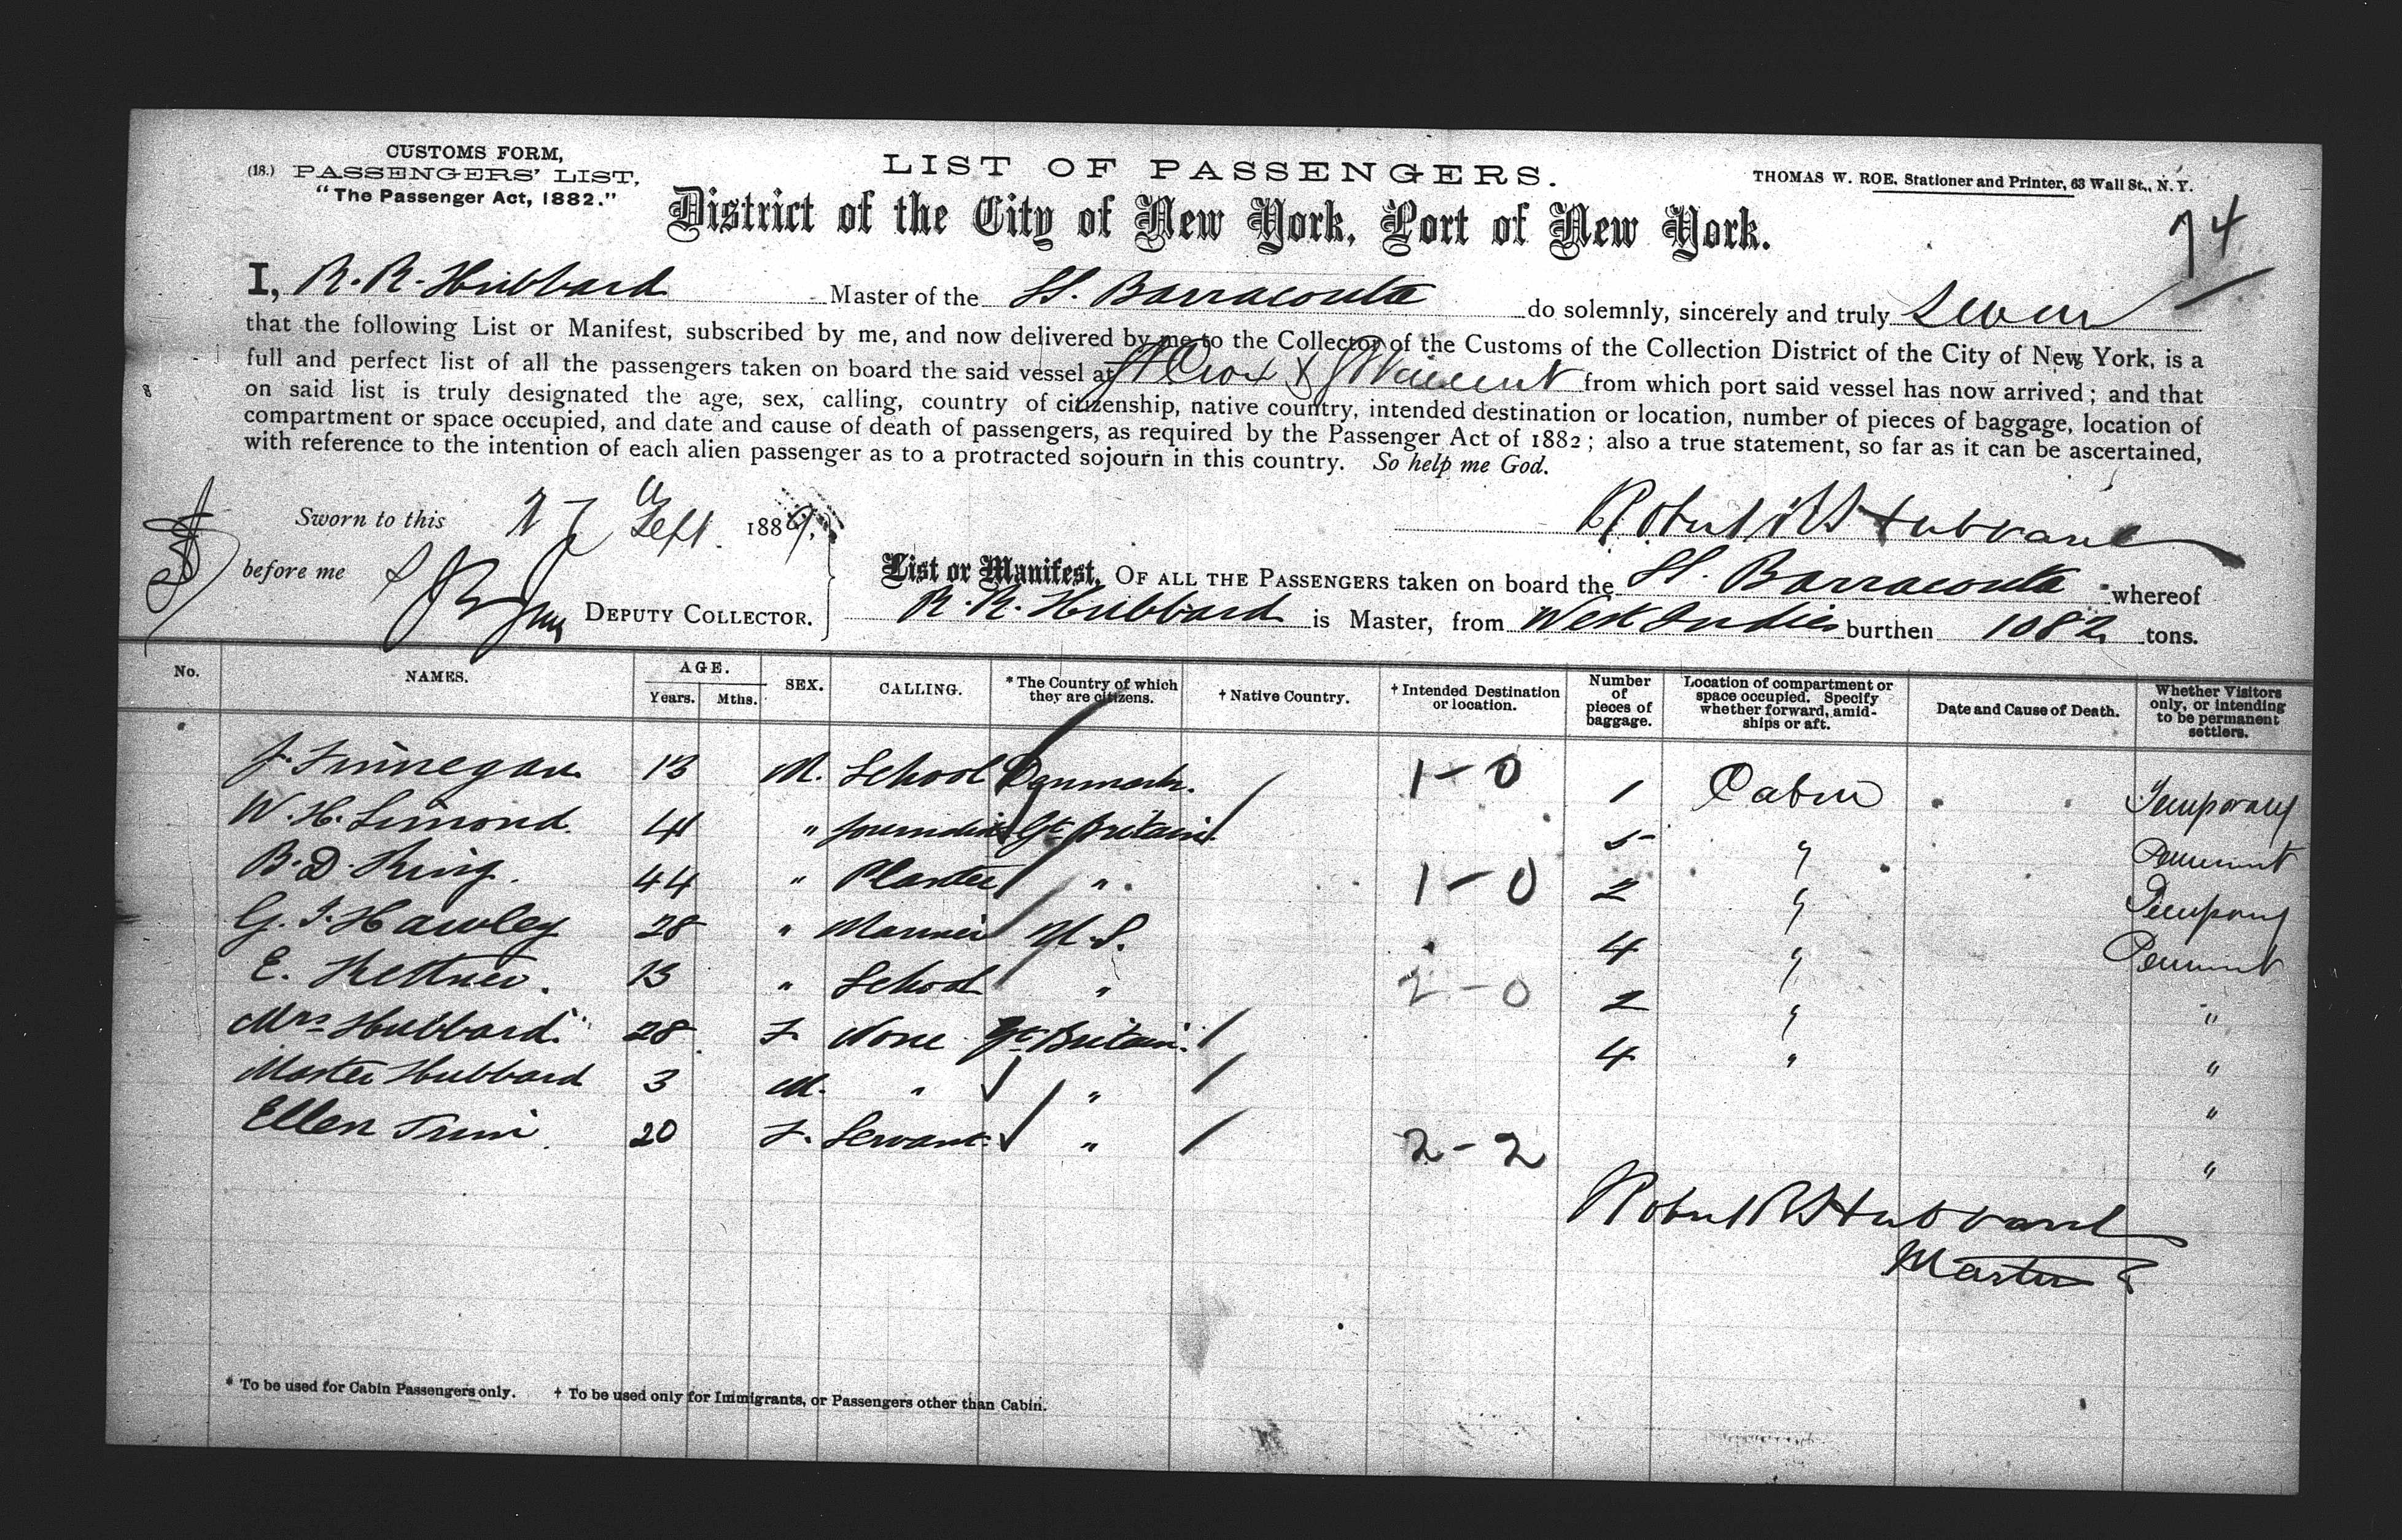 CUSTOMS FORM,
(18.) PASSENGERS' LIST,
"The Passenger Act, 1882."
LIST OF PASSENGERS.
THOMAS W. ROE, Stationer and Printer, 63 Wall St., N. Y.
District of the City of New York, Port of New York.
74
I, R. R. Hubbard Master of the SS. Barracouta do solemnly, sincerely and truly Swear
that the following List or Manifest, subscribed by me, and now delivered by me to the Collector of the Customs of the Collection District of the City of New York, is a
full and perfect list of all the passengers taken on board the said vessel at St Croix & St Vincent from which port said vessel has now arrived; and that
on said list is truly designated the age, sex, calling, country of citizenship, native country, intended destination or location, number of pieces of baggage, location of
compartment or space occupied, and date and cause of death of passengers, as required by the Passenger Act of 1882; also a true statement, so far as it can be ascertained,
with reference to the intention of each alien passenger as to a protracted sojourn in this country. So help me God.
Sworn to this 27 Sept. 188
Robert R Hubbard
before me DEPUTY COLLECTOR.
List or Manifest, OF ALL THE PASSENGERS taken on board the SS. Barracouta whereof
R. R. Hubbard is Master, from West Indies burthen 1082 tons.
No. NAMES. AGE. Years. Mths. SEX. CALLING. * The Country of which they are citizens. † Native Country. † Intended Destination or location. Number of pieces of baggage. Location of compartment or space occupied. Specify whether forward, amidships or aft. Date and Cause of Death. Whether Visitors only, or intending to be permanent settlers.
J. Finnegan 13 M. School Denmark. 1-0 1 Cabin Temporary
W. H. Simond. 41 " Journalist Gt Britain 5 " Permint
B. D. King. 44 " Planter " 1-0 2 " Temporary
G. I. Hawley 28 " Mariner U.S. 4 " Permint
E. Kettner. 13 " School " 2-0 2 " "
Mrs Hubbard. 28 F. None Gt Britain. 4 " "
Master Hubbard 3 M. " " "
Ellen 20 F. Servant " 2-2 "
Robert R Hubbard
Master
* To be used for Cabin Passengers only. † To be used only for Immigrants, or Passengers other than Cabin.